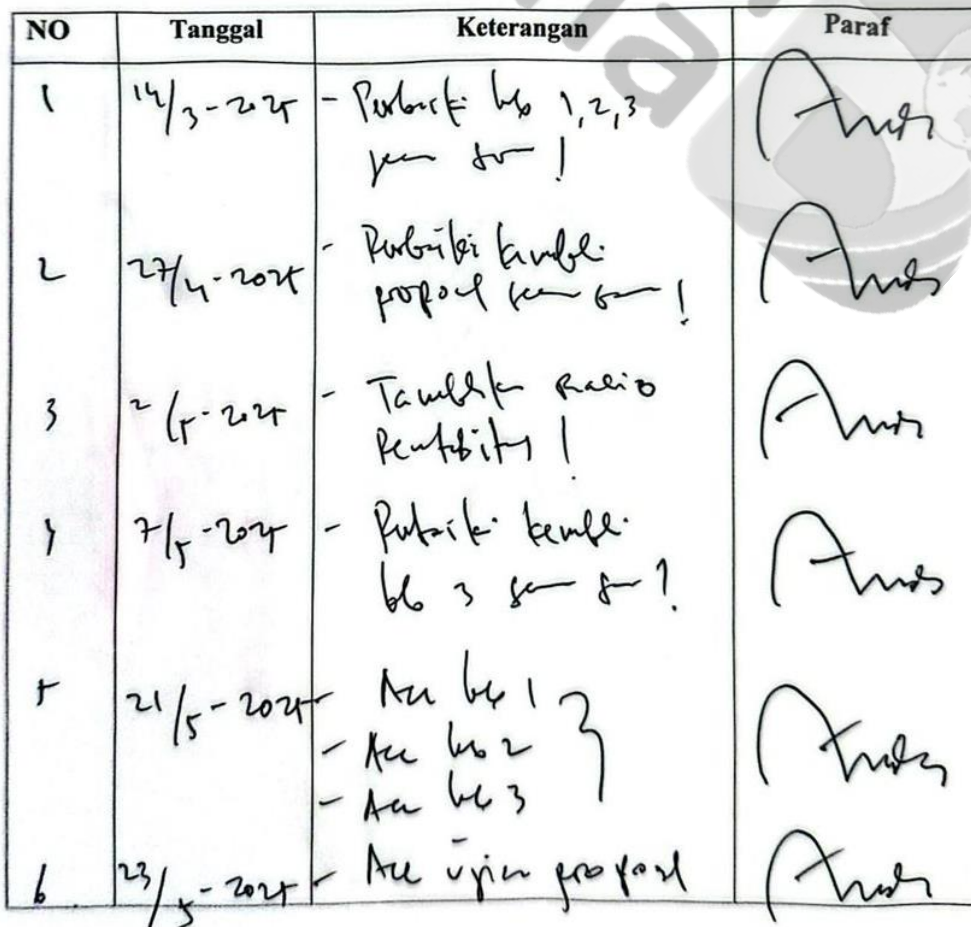 NO Tanggal Keterangan Paraf
1 14/3-2025 - Perbaiki bab 1,2,3
saran !
2 27/4-2025 - Perbaiki kembali
proposal saran !
3 2/5-2025 - Tambahkan Rasio
Rentabilitas !
4 7/5-2025 - Perbaiki kembali
bab 3 saran !
5 21/5-2025 - Acc bab 1
- Acc bab 2
- Acc bab 3
6 23/5-2025 - Acc ujian proposal